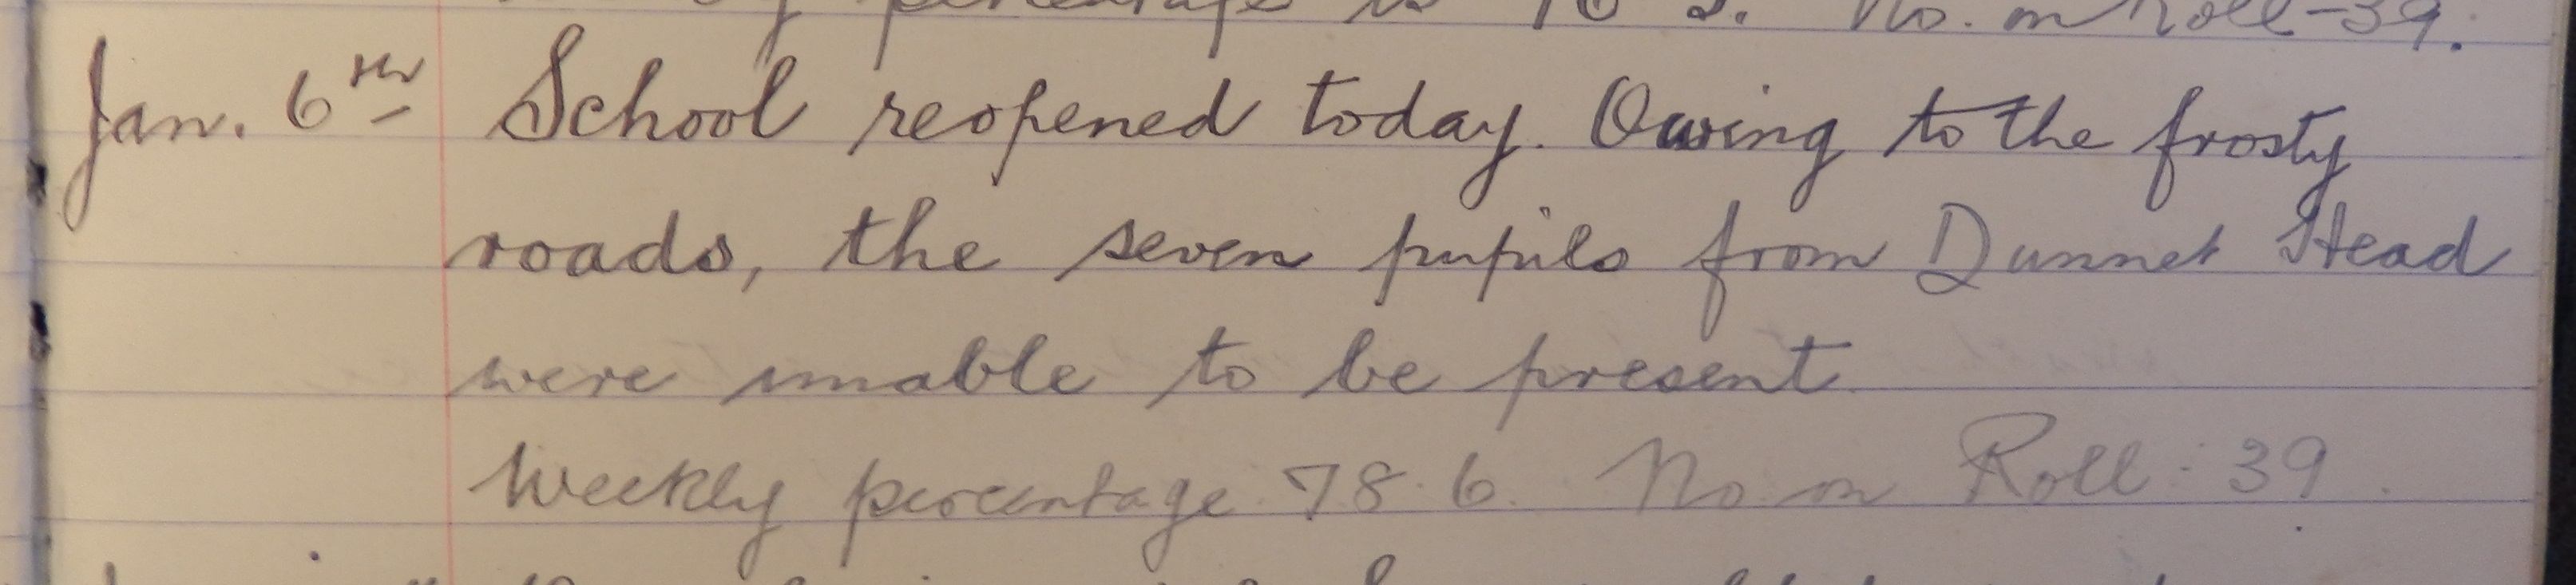 percentage is No. on Roll - 39.
Jan. 6th School reopened today. Owing to the frosty
roads, the seven pupils from Dunnet Head
were unable to be present.
Weekly percentage 78.6. No. on Roll: 39.